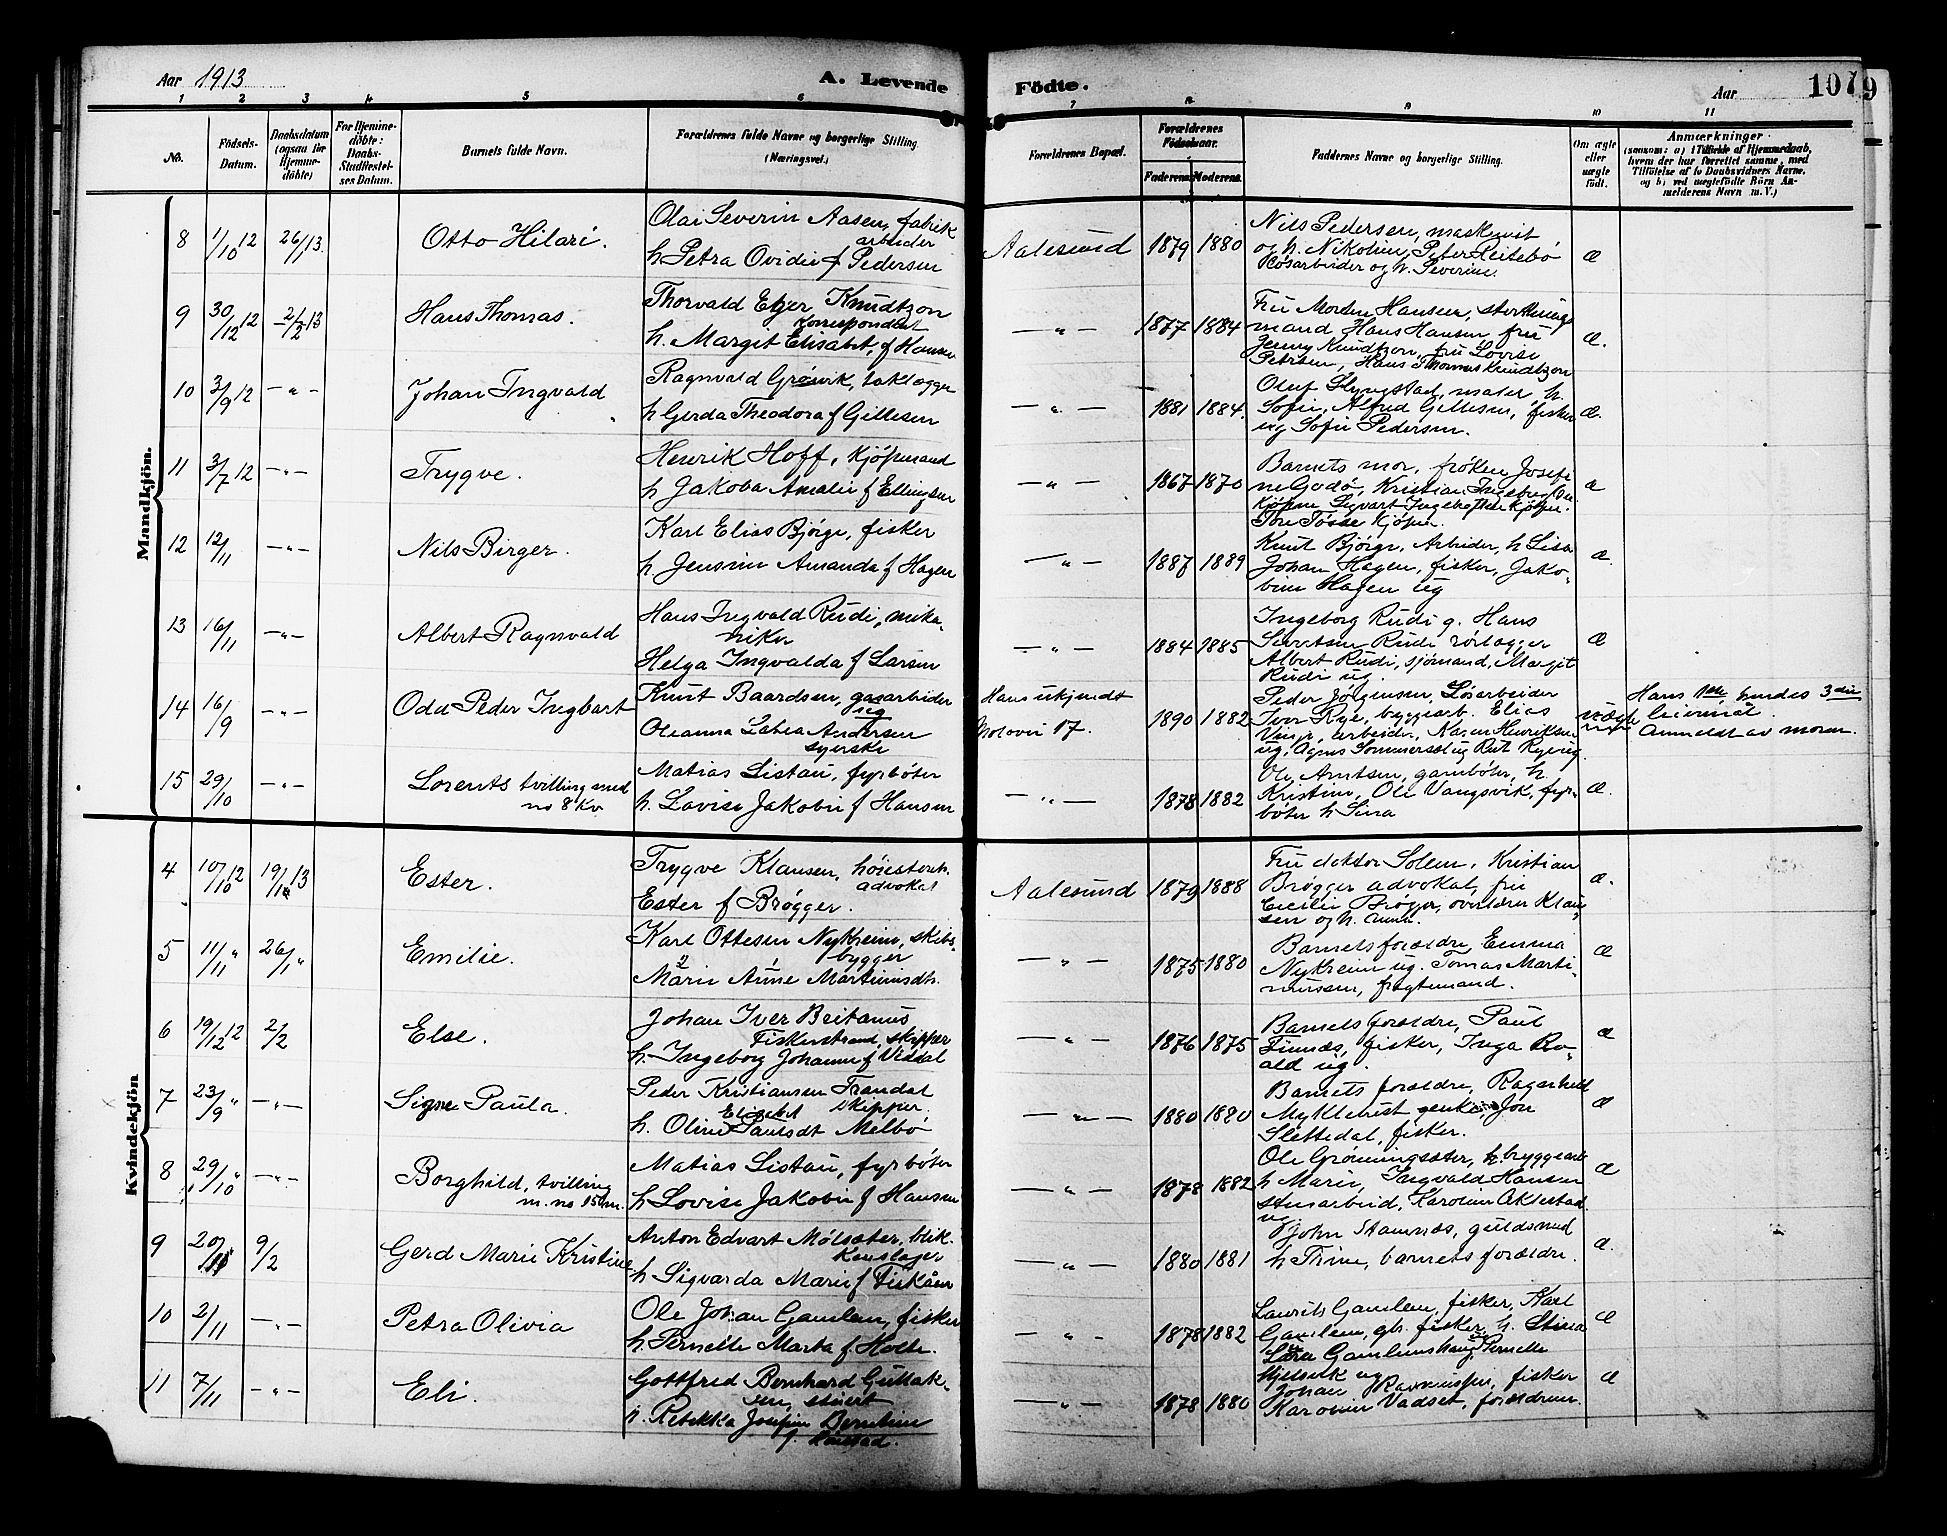 Aar 1913
A. Levende
Födte.
Aar
107
9
1 2 3 4 5 6 7 8 9 10 11
No.
Födsels-
Datum.
Daabsdatum
(ogsaa for
Hjemme-
döbte)
For Hjemme-
döbte:
Daabs-
Stadfæstel-
ses Datum.
Barnets fulde Navn.
Forældrenes fulde Navne og borgerlige Stilling.
(Næringsvei.)
Forældrenes Bopæl.
Forældrenes
Födselsaar.
Faderens Moderens.
Faddernes Navne og borgerlige Stilling.
Om ægte
eller
uægte
født.
Anmærkninger
(saasom: a) i Tilfælde af Hjemmedaab,
hvem der har forrettet samme, med
Tilföielse af to Daabsvidners Navne,
og b) ved uægtefödte Börn An-
melderens Navn m. V.)
Mandkjön.
8 1/10 12 26/1 13. Otto Hilari.
Olai Severin Aasen, fabrik
arbeider
h. Petra Ovidie f Pedersen
Aalesund 1879 1880
Nils Pedersen, maskinist
og h. Nikoline, Peter Reitebø
Løsarbeider og h. Severine.
Æ
9 30/12 12 2/2 13 Hans Thomas.
Thorvald Ejer Knudtzon
Korrespondent
h. Margit Elisabet, f Hansen
—"— 1877 1884
Fru Morten Hansen, stortings
mand Hans Hansen fru
Jenny Knudtzon, fru Lovise
Petersen, Hans Thomas Knudtzon
Æ.
10 3/9 12 —"— Johan Ingvald
Ragnvald Grønvik, taklægger
h Gerda Theodora f Gillesen
—"— 1881 1884.
Oluf Slyngstad, maler, h.
Sofie, Alfred Gillesen, fisker
ug Sofie Pedersen.
Æ.
11 3/7 12 —"— Trygve.
Henrik Hoff, Kjöpmand
h Jakoba Amalie f Ellingsen
—"— 1867 1870
Barnets mor, frøken Josefi
ne Godø, Kristian
Kjøpm. Sigvart Ingebrigtsen Kjöpm.
Kjøpm.
Æ
12 12/11 —"— Nils Birger.
Karl Elias Bjørge, fisker
h. Jensine Amanda f Hagen
—"— 1887 1889
Knut Bjørge, Arbeider, h Lisa
Johan Hagen, fisker, Jako-
bine Hagen ug
Æ.
13 16/11 —"— Albert Ragnvald
Hans Ingvald Rudi, meka-
niker
Helga Ingvalda f Larsen
—"— 1884 1885
Ingeborg Rudi g. Hans
Sivertsen Rudi rörlægger
Albert Rudi, sjömand, Margit
Rudi ug.
Æ
14 16/9 —"— Odd Peder Ingbart
Knut Baardsen, gasarbeider
Oleanna Andersen
syerske
Hans ukjendt
Moloveien 17. 1890 1882
Peder Jørgensen, Løsarbeider
Iver Rye, byggearb. Elias
Vinje, arbeider, Karen Henriksen
ug, Agnes Sommersæt ug Rut Rye ug
uægte
Hans 1ste hendes 3die
leiermål.
Anmeldt av moren.
15 29/10 —"— Lorents tvilling med
no 8 Kv
Matias Listau, fyrböter
h. Lovise Jakobine f Hansen
—"— 1878 1882
Ole Arntsen, garnböter, h.
Kristine, Ole Vangsvik, fyr-
böter h Lina
Æ.
Kvindekjön
4 10/10 12 19/1 13 Ester.
Trygve Klausen, höiesterets
advokat
Ester f Brøgger.
Aalesund 1879 1888
Fru doktor Solem, Kristian
Brøgger advokat, fru
Cecilie Brøgger, overlærer Klau-
sen og h. Anna.
Æ.
5 11/11 " 26/1 " Emilie.
Karl Ottesen Nykreim, skibs-
bygger
Marie Anne Martinusdt.
—"— 1875 1880
Barnets forældre, Emma
Nykreim ug. Tomas Marti-
nussen, fragtemand.
Æ
6 19/12 12 2/2 Else.
Johan Iver Britanus
Fiskerstrand, skipper
h. Ingeborg Johanne f Vedal
—"— 1876 1875
Barnets forældre, Paul
Finnes, fisker, Inga Ro-
ald ug.
Æ
7 23/9 " —"— Signe Paula.
Peder Kristiansen Trandal
Elisabet skipper.
h. Oline Paulsdt Melbö
—"— 1880 1880
Barnets forældre, Ragnhild
Myklebust enke, Jon
Slettedal, fisker.
Æ
8 29/10 " —"— Borghild, tvilling
m. no 15 m.
Matias Listau, fyrböter
h Lovise Jakobine f Hansen
—"— 1878 1882
Ole Grønningsæter, byggearb
h Marie, Ingvald Hansen
stuearbeid, Karoline Aklestad
ug
Æ
9 20/11 9/2 Gerd Marie Kristine
Anton Edvart Mølsæter, blik-
kenslager
h Sigvarda Marie f Fiskåen
—"— 1880 1881
John Stamnæs, guldsmed
h Trine, barnets forældre.
Æ.
10 2/11 —"— Petra Olivia
Ole Johan Gamlem, fisker
h. Pernille Marta f Holte.
—"— 1878 1882
Laurits Gamlem, fisker, Karl
Gamlem, gb. fisker h. Stina
Lara Gamlemshaug, Pernelle
Hjelsvik ug
Æ
11 7/11 —"— Eli.
Gottfred Bernhard Gullak-
sen, stuert
h. Rebekka Josefine Berntine
f.
—"— 1878 1880
Johan fisker
Karoline Vadset, forældrene.
Æ